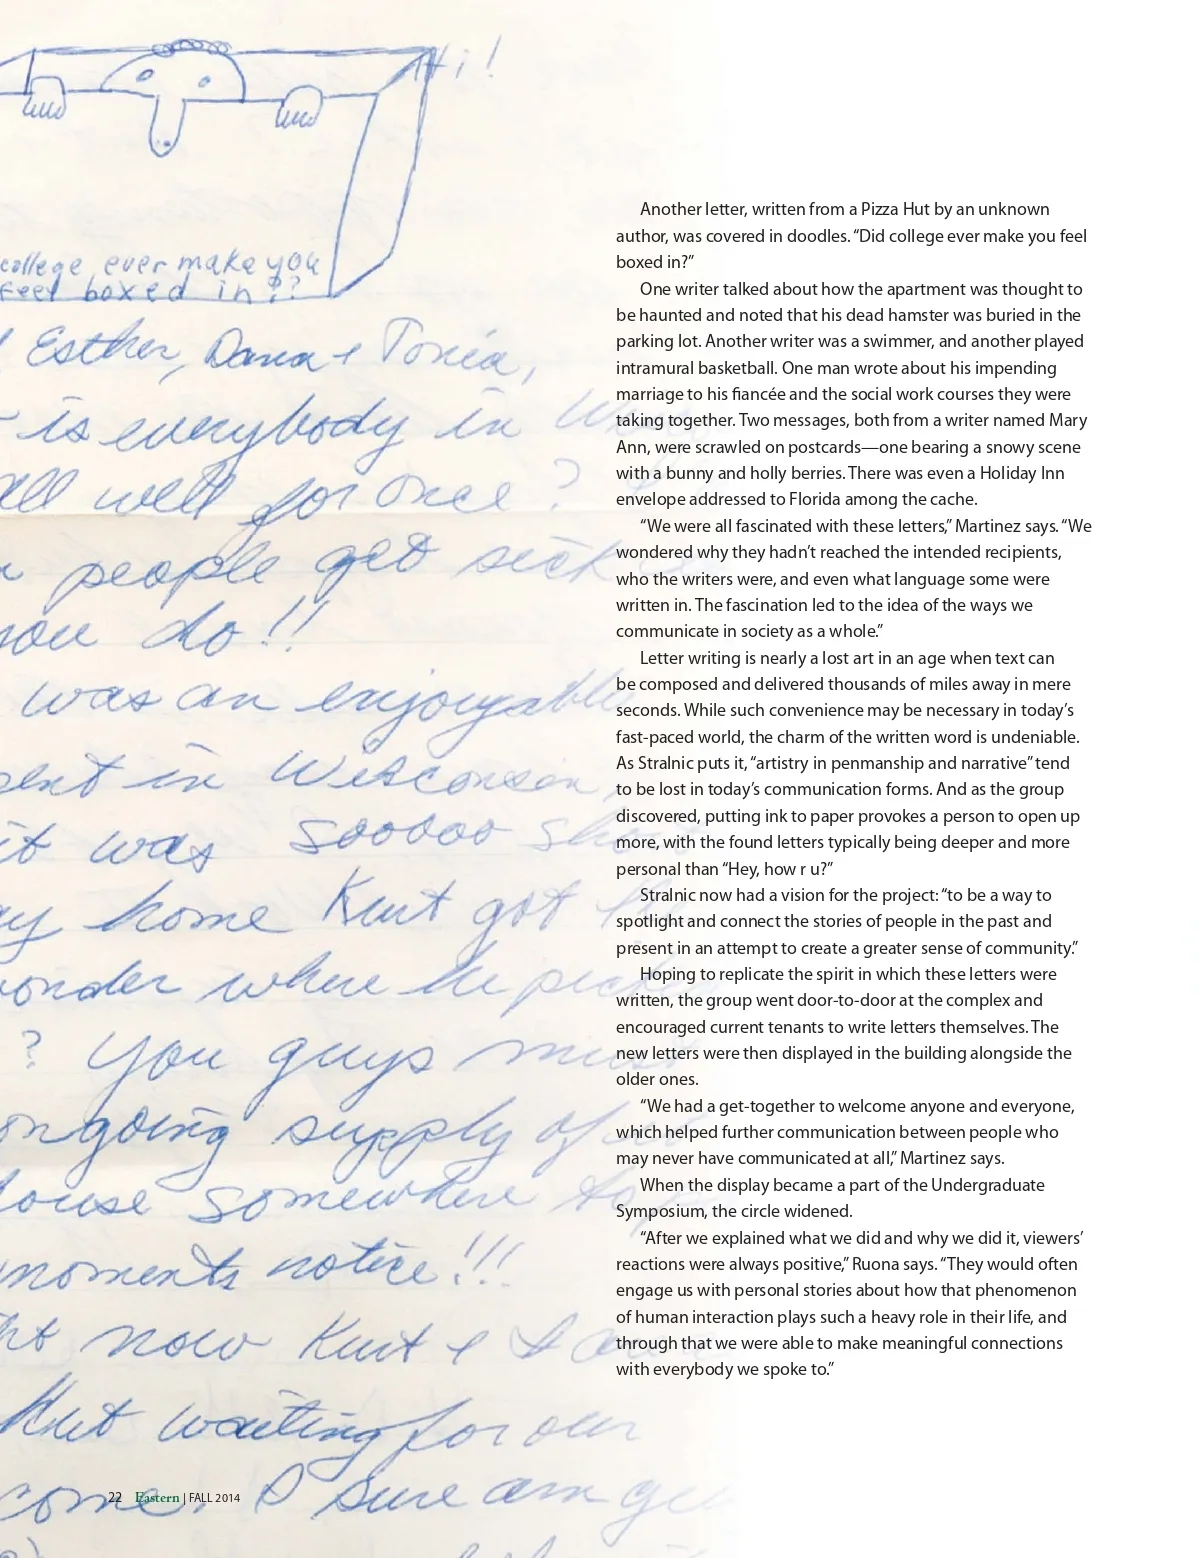 Hi!
college ever make you
feel boxed in??
Esther, Dana & Tonia,
is everybody in
all well for once?
people get sick
you do!!
was an enjoyable
in Wisconsin,
it was sooooo short
home Kurt got the
wonder where he picked
? You guys must
ongoing supply of
house somewhere to
moments notice!!!
now Kurt & I are
Hut waiting for our
come. I sure am
Another letter, written from a Pizza Hut by an unknown
author, was covered in doodles. “Did college ever make you feel
boxed in?”
One writer talked about how the apartment was thought to
be haunted and noted that his dead hamster was buried in the
parking lot. Another writer was a swimmer, and another played
intramural basketball. One man wrote about his impending
marriage to his fiancée and the social work courses they were
taking together. Two messages, both from a writer named Mary
Ann, were scrawled on postcards—one bearing a snowy scene
with a bunny and holly berries. There was even a Holiday Inn
envelope addressed to Florida among the cache.
“We were all fascinated with these letters,” Martinez says. “We
wondered why they hadn’t reached the intended recipients,
who the writers were, and even what language some were
written in. The fascination led to the idea of the ways we
communicate in society as a whole.”
Letter writing is nearly a lost art in an age when text can
be composed and delivered thousands of miles away in mere
seconds. While such convenience may be necessary in today’s
fast-paced world, the charm of the written word is undeniable.
As Stralnic puts it, “artistry in penmanship and narrative” tend
to be lost in today’s communication forms. And as the group
discovered, putting ink to paper provokes a person to open up
more, with the found letters typically being deeper and more
personal than “Hey, how r u?”
Stralnic now had a vision for the project: “to be a way to
spotlight and connect the stories of people in the past and
present in an attempt to create a greater sense of community.”
Hoping to replicate the spirit in which these letters were
written, the group went door-to-door at the complex and
encouraged current tenants to write letters themselves. The
new letters were then displayed in the building alongside the
older ones.
“We had a get-together to welcome anyone and everyone,
which helped further communication between people who
may never have communicated at all,” Martinez says.
When the display became a part of the Undergraduate
Symposium, the circle widened.
“After we explained what we did and why we did it, viewers’
reactions were always positive,” Ruona says. “They would often
engage us with personal stories about how that phenomenon
of human interaction plays such a heavy role in their life, and
through that we were able to make meaningful connections
with everybody we spoke to.”
22 Eastern | FALL 2014